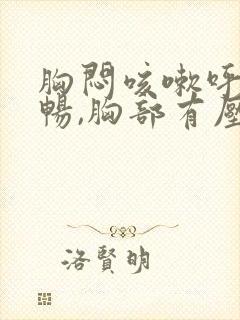 胸悶咳嗽呼
暢,胸部有壓
洛賢明